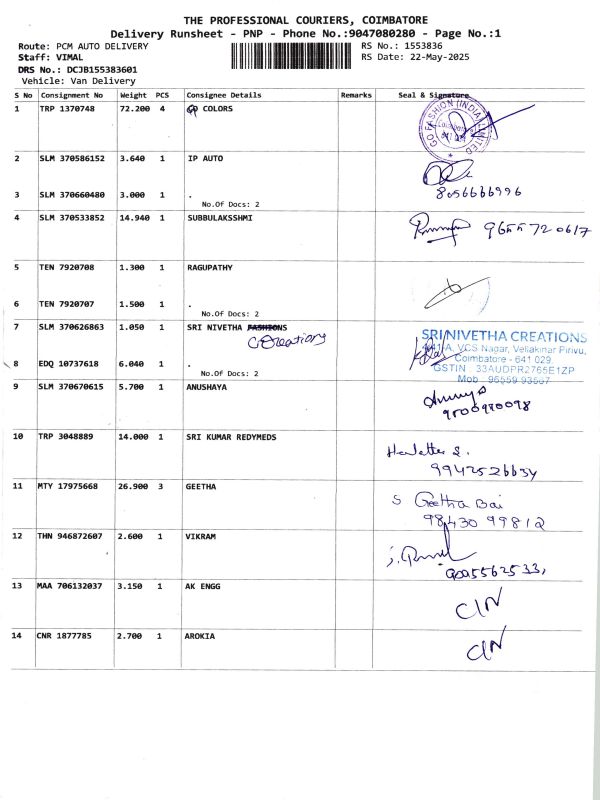 THE PROFESSIONAL COURIERS, COIMBATORE
Delivery Runsheet - PNP - Phone No.:9047080280 - Page No.:1
Route: PCM AUTO DELIVERY RS No.: 1553836
Staff: VIMAL RS Date: 22-May-2025
DRS No.: DCJB155383601
Vehicle: Van Delivery
S No Consignment No Weight PCS Consignee Details Remarks Seal & Signature
1 TRP 1370748 72.200 4 COLORS
GO FASHION (INDIA) LIMITED
2 SLM 370586152 3.640 1 IP AUTO
8056666996
3 SLM 370660480 3.000 1 .
No.Of Docs: 2
4 SLM 370533852 14.940 1 SUBBULAKSSHMI
9655720617
5 TEN 7920708 1.300 1 RAGUPATHY
6 TEN 7920707 1.500 1 .
No.Of Docs: 2
7 SLM 370626863 1.050 1 SRI NIVETHA FASHIONS
Creations
SRI NIVETHA CREATIONS
VCS Nagar, Vellakinar Pirivu,
Coimbatore - 641 029.
GSTIN : 33AUDPR2765E1ZP
Mob : 96559 93567
8 EDQ 10737618 6.040 1 .
No.Of Docs: 2
9 SLM 370670615 5.700 1 ANUSHAYA
9500980098
10 TRP 3048889 14.000 1 SRI KUMAR REDYMEDS
9942526634
11 MTY 17975668 26.900 3 GEETHA
S Geetha Bai
98430 99812
12 THN 946872607 2.600 1 VIKRAM
9005562533
13 MAA 706132037 3.150 1 AK ENGG
CIN
14 CNR 1877785 2.700 1 AROKIA
CIN